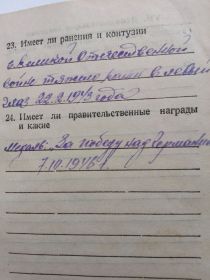 23. Имеет ли ранения и контузии
в Великой Отечественной
войне тяжело ранен в левый
глаз 22.2.1943 года
24. Имеет ли правительственные награды
и какие
Медаль "За победу над Германией
7.10.1946 г